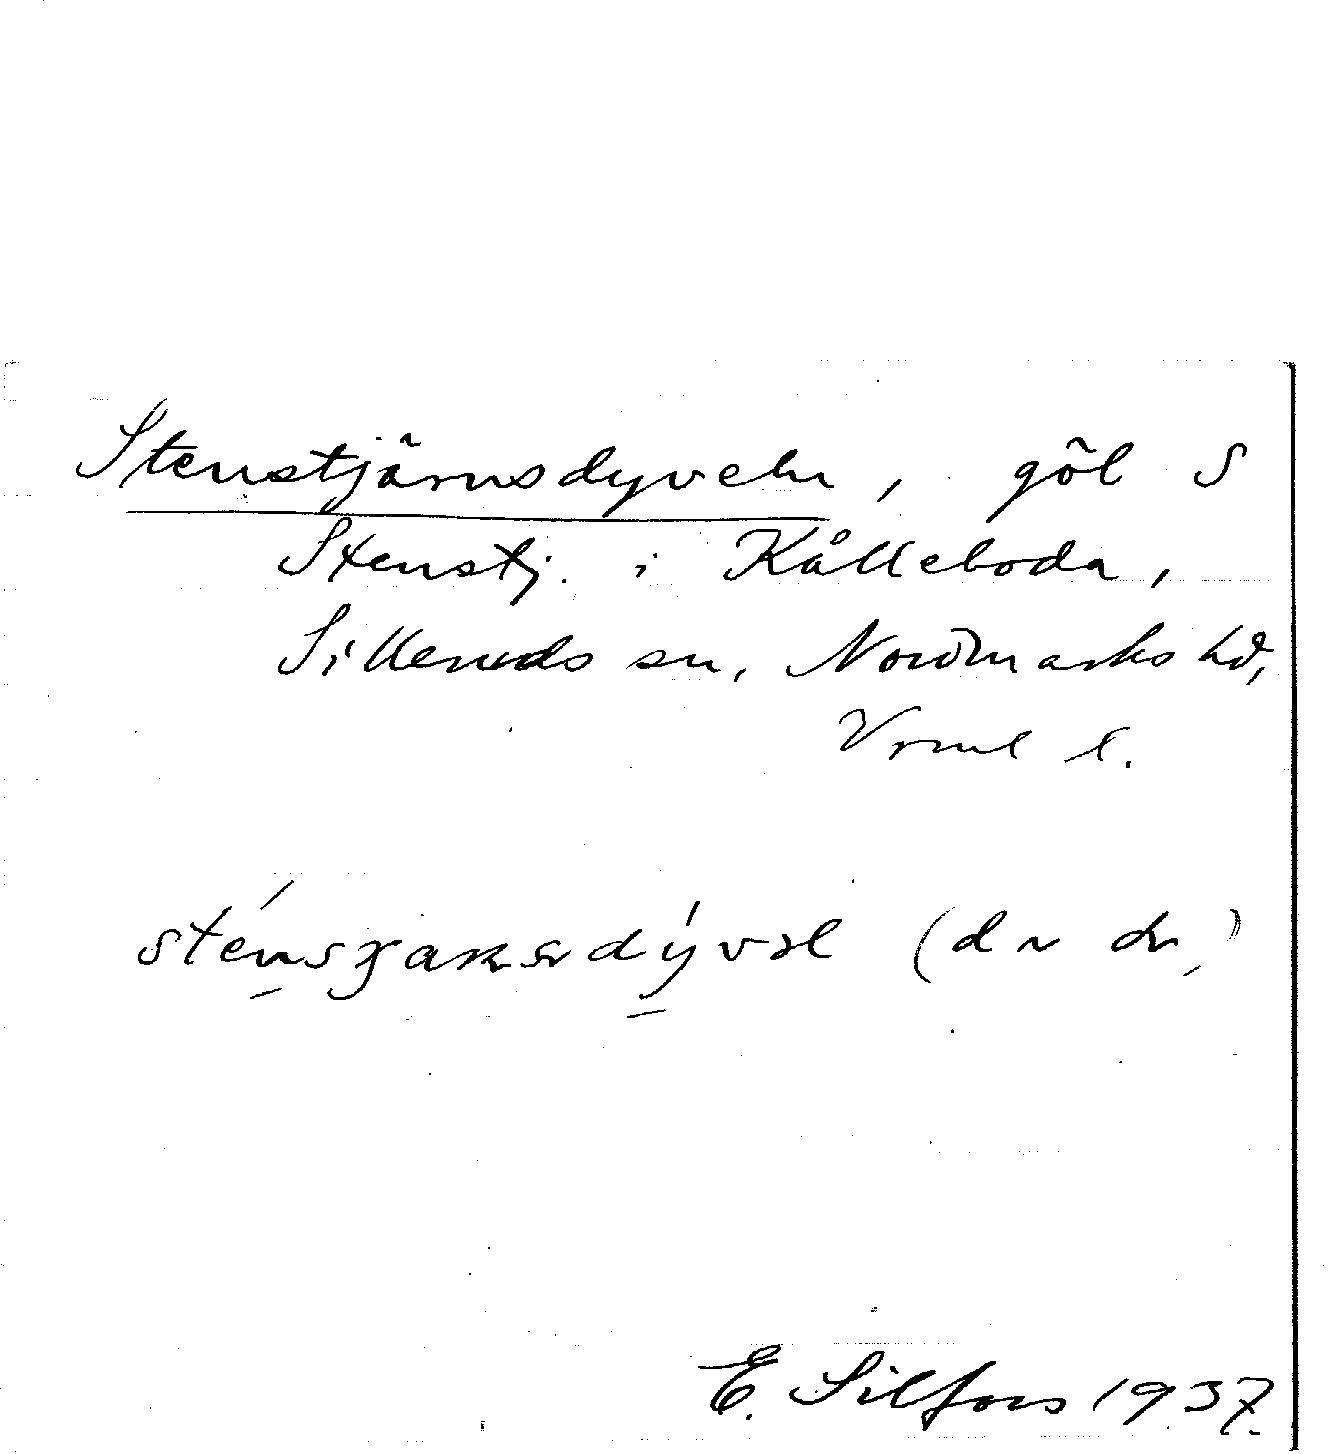 Stenstjärnsdyveln, göl S
Stenstj. i Kålleboda,
Silleruds sn, Nordmarks hd,
Vrml l.
E. Silfors 1937.